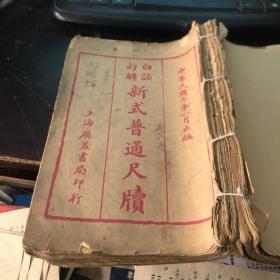 中華民國十年一月出版
白話
句解
新式普通尺牘
上海廣益書局印行